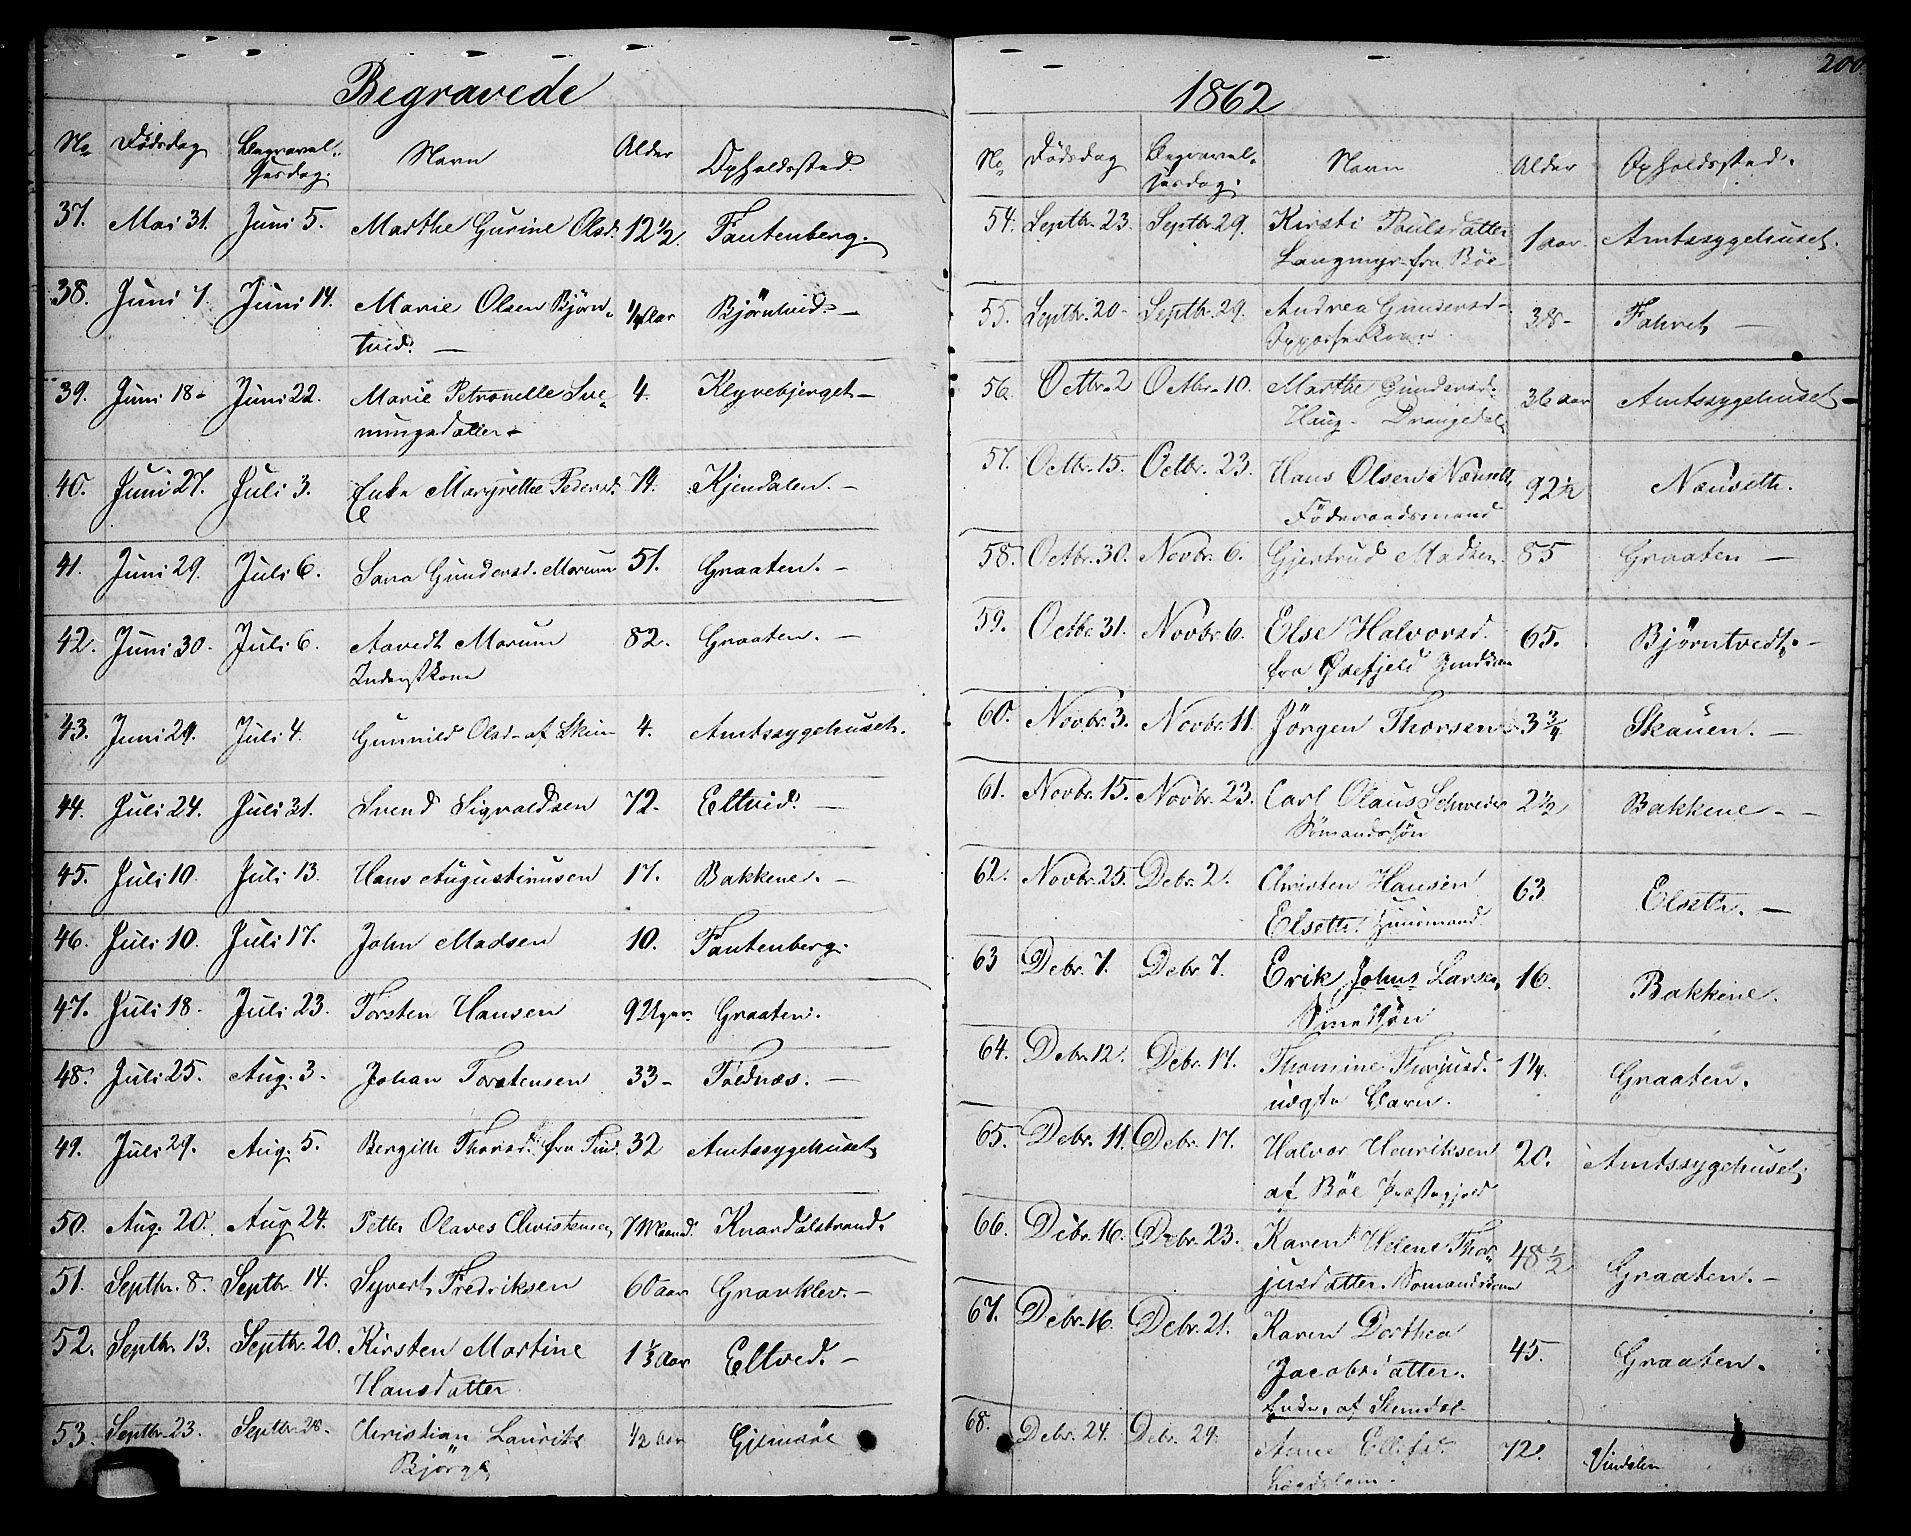 Begravede
No Dødsdag Begravel-
sesdag. Navn Alder Opholdssted.
37. Mai 31. Juni 5. Marthe Gurine Olsd. 12 1/2 Fautenberg.
38. Juni 7. Juni 14. Marie Olsen Bjørn- 1/4 Aar Bjørntvid. —
tvid. —
39. Juni 18. Juni 22. Marie Petronelle Sve- 4. Klyvebjerget —
nungsdatter —
40. Juni 27. Juli 3. Enke Margrethe Pedersd. 74. Kjendalen. —
41. Juni 29. Juli 6. Sara Gundersd. Morum 51. Graaten. —
42. Juni 30. Juli 6. Aavedt Morum 82. Graaten. —
Inderstkone
43. Juni 29. Juli 4. Gunnild Olsd. af Skien 4. Amtssygehuset.
44. Juli 24. Juli 31. Svend Sigvaldsen 72. Eltvid. —
45. Juli 10. Juli 13. Hans Augustinusen 17. Bakkene. —
46. Juli 10. Juli 17. John Madsen 10. Fautenberg.
47. Juli 18. Juli 23. Torsten Hansen 9 Uger. Graaten.
48. Juli 25. Aug. 3. Johan Torstensen 33 — Toldnæs. —
49. Juli 29. Aug. 5. Bergitte Thorsd. fra Tind. 32 Amtssygehuset.
50. Aug. 20. Aug 24. Petter Olaves Christensen 7 Maaned. Knardalstrand.
51. Septbr. 8. Septbr. 14. Syvert Fredriksen 60 aar Gravklev. —
52. Septbr. 13. Septbr. 20. Kirsten Martine 1 1/3 Aar Eltved. —
Hansdatter.
53. Septbr. 23. Septbr. 28. Christian Laurits 1/2 Aar Gjemsøe
Bjørge
1862
200.
No Dødsdag Begravel-
sesdag. Navn Alder Opholdssted.
54. Septbr. 23. Septbr. 29. Kirsti Poulsdatter 1 aar. Amtssygehuset.
Langmyr fra Bøe
55. Septbr. 20 Septbr. 29. Andrea Gundersd 38 — Fahret —
56. Octbr. 2 Octbr. 10. Marthe Gundersd. 36 aar Amtssygehuset —
Haug — Drangedal
57. Octbr. 15. Octbr. 23. Hans Olsen Nænseth 92 1/2 Nænseth.
Föderaadsmand
58. Octbr. 30. Novbr. 6. Gjertrud Madsen. 85 Graaten —
59. Octbr. 31. Novbr. 6. Else Halvorsd. 65. Björntvedt. —
fra
60. Novbr. 3. Novbr. 11. Jörgen Thorsen 3 3/4 Skauen. —
61. Novbr. 15. Novbr. 23. Carl Olaus Schweder 2 1/2 Bakkene —
Sömandssön
62. Novbr. 25. Debr. 2. Christen Hansen 63 Elseth. —
Elseth Huusmand
63 Debr. 7. Debr. 7. Erik Johns Larsen 16. Bakkene.
Smedsön
64. Debr. 12. Debr. 17. Thomine Thorjusd. 1 1/4. Graaten.
uægte Barn.
65. Debr. 11. Debr. 17. Halvor Henriksen 20. Amtssygehuset.
af Böe Præstegjeld
66. Debr. 16. Debr. 23. Karen Helene Thor- 48 1/2 Graaten. —
jusdatter. Sömandskone
67. Debr. 16. Debr. 21. Karen Dorthea 45. Graaten.
Jacobsdatter.
Enke, af Slemdal
68. Debr. 24. Debr. 29. Anne Ellefsd. 72. Vindalen
Lægdslem.